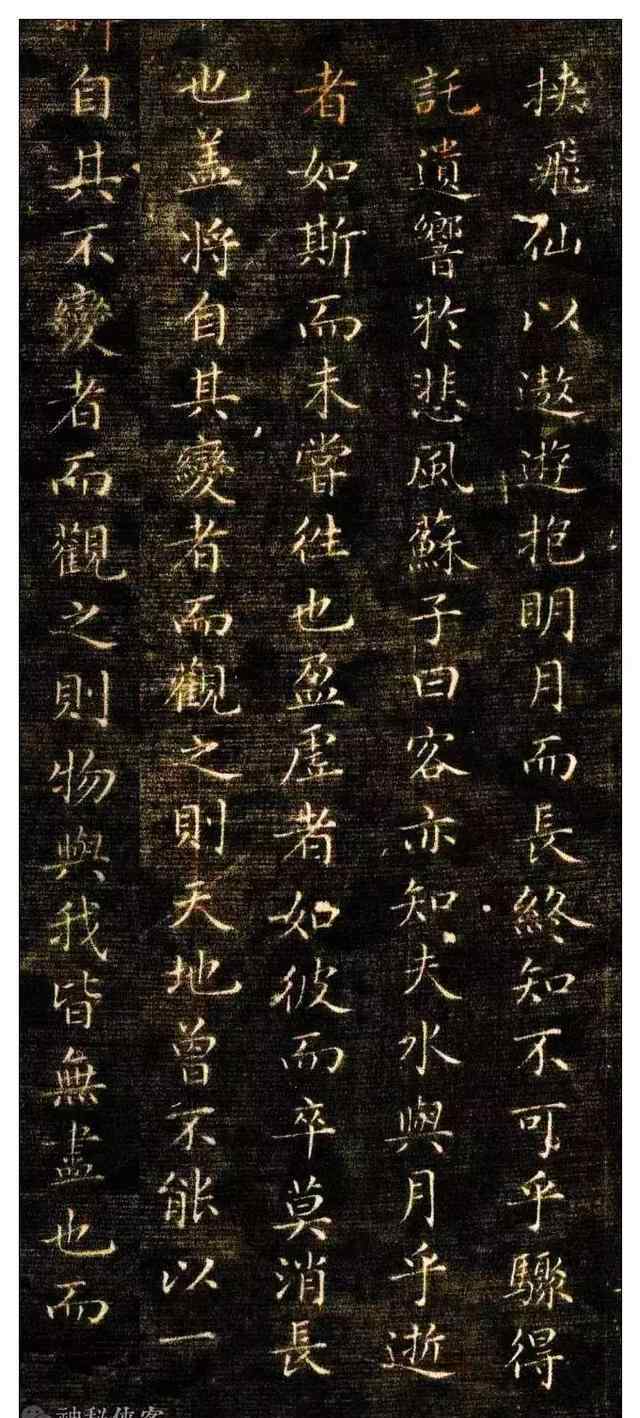 挟飛仙以遨遊抱明月而長終知不可乎驟得
託遺響於悲風蘇子曰客亦知夫水與月乎逝
者如斯而未嘗往也盈虛者如彼而卒莫消長
也盖將自其變者而觀之則天地曾不能以一
瞬自其不變者而觀之則物與我皆無盡也而
神秘侠客